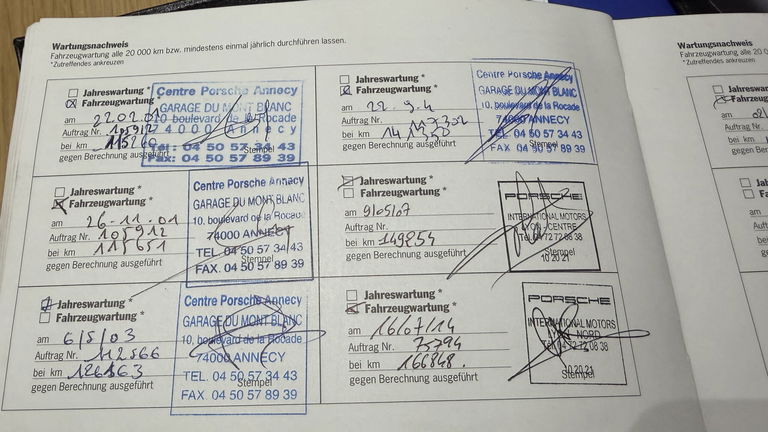 Wartungsnachweis
Fahrzeugwartung alle 20 000 km bzw. mindestens einmal jährlich durchführen lassen.
*Zutreffendes ankreuzen
Jahreswartung *
Fahrzeugwartung
am 22.02.
Auftrag Nr. 105912
bei km
gegen Berechnung ausgeführt
Stempel
Centre Porsche Annecy
GARAGE DU MONT BLANC
10 boulevard de la Rocade
74000 Annecy
Tél : 04 50 57 34 43
Fax: 04 50 57 89 39
Jahreswartung *
Fahrzeugwartung *
am 26.11.01
Auftrag Nr. 105912
bei km 115651
gegen Berechnung ausgeführt
Stempel
Centre Porsche Annecy
GARAGE DU MONT BLANC
10, boulevard de la Rocade
74000 ANNECY
TEL. 04 50 57 34 43
FAX. 04 50 57 89 39
Jahreswartung *
Fahrzeugwartung *
am 6/5/03
Auftrag Nr. 112566
bei km 126163
gegen Berechnung ausgeführt
Stempel
Centre Porsche Annecy
GARAGE DU MONT BLANC
10, boulevard de la Rocade
74000 ANNECY
TEL. 04 50 57 34 43
FAX. 04 50 57 89 39
Jahreswartung *
Fahrzeugwartung *
am 22.9.4
Auftrag Nr.
bei km
gegen Berechnung ausgeführt
Stempel
Centre Porsche Annecy
GARAGE DU MONT BLANC
10, boulevard de la Rocade
74000 ANNECY
TEL. 04 50 57 34 43
FAX. 04 50 57 89 39
Jahreswartung *
Fahrzeugwartung *
am 9/05/07
Auftrag Nr.
bei km 149854
gegen Berechnung ausgeführt
Stempel
PORSCHE
INTERNATIONAL MOTORS
LYON - CENTRE
Tél. 04 72 77 86 38
10 20 21
Jahreswartung *
Fahrzeugwartung *
am 16/07/14
Auftrag Nr. 75794
bei km 166848.
gegen Berechnung ausgeführt
Stempel
PORSCHE
INTERNATIONAL MOTORS
LYON NORD
10 20 21
Wartungsnachweis
Fahrzeugwartung alle 20
*Zutreffendes ankreuzen
Jahreswartung
Fahrzeugwartung
am
Auftrag Nr.
bei km
gegen Berechnung